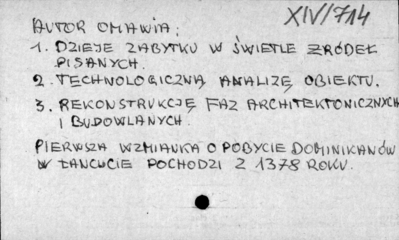 XIV/714
AUTOR OMAWIA:
1. DZIEJE ZABYTKU W ŚWIETLE ŹRÓDEŁ
PISANYCH.
2. TECHNOLOGICZNĄ ANALIZĘ OBIEKTU.
3. REKONSTRUKCJĘ FAZ ARCHITEKTONICZNYCH
I BUDOWLANYCH.
PIERWSZA WZMIANKA O POBYCIE DOMINIKANÓW
W ŁAŃCUCIE POCHODZI Z 1378 ROKU.